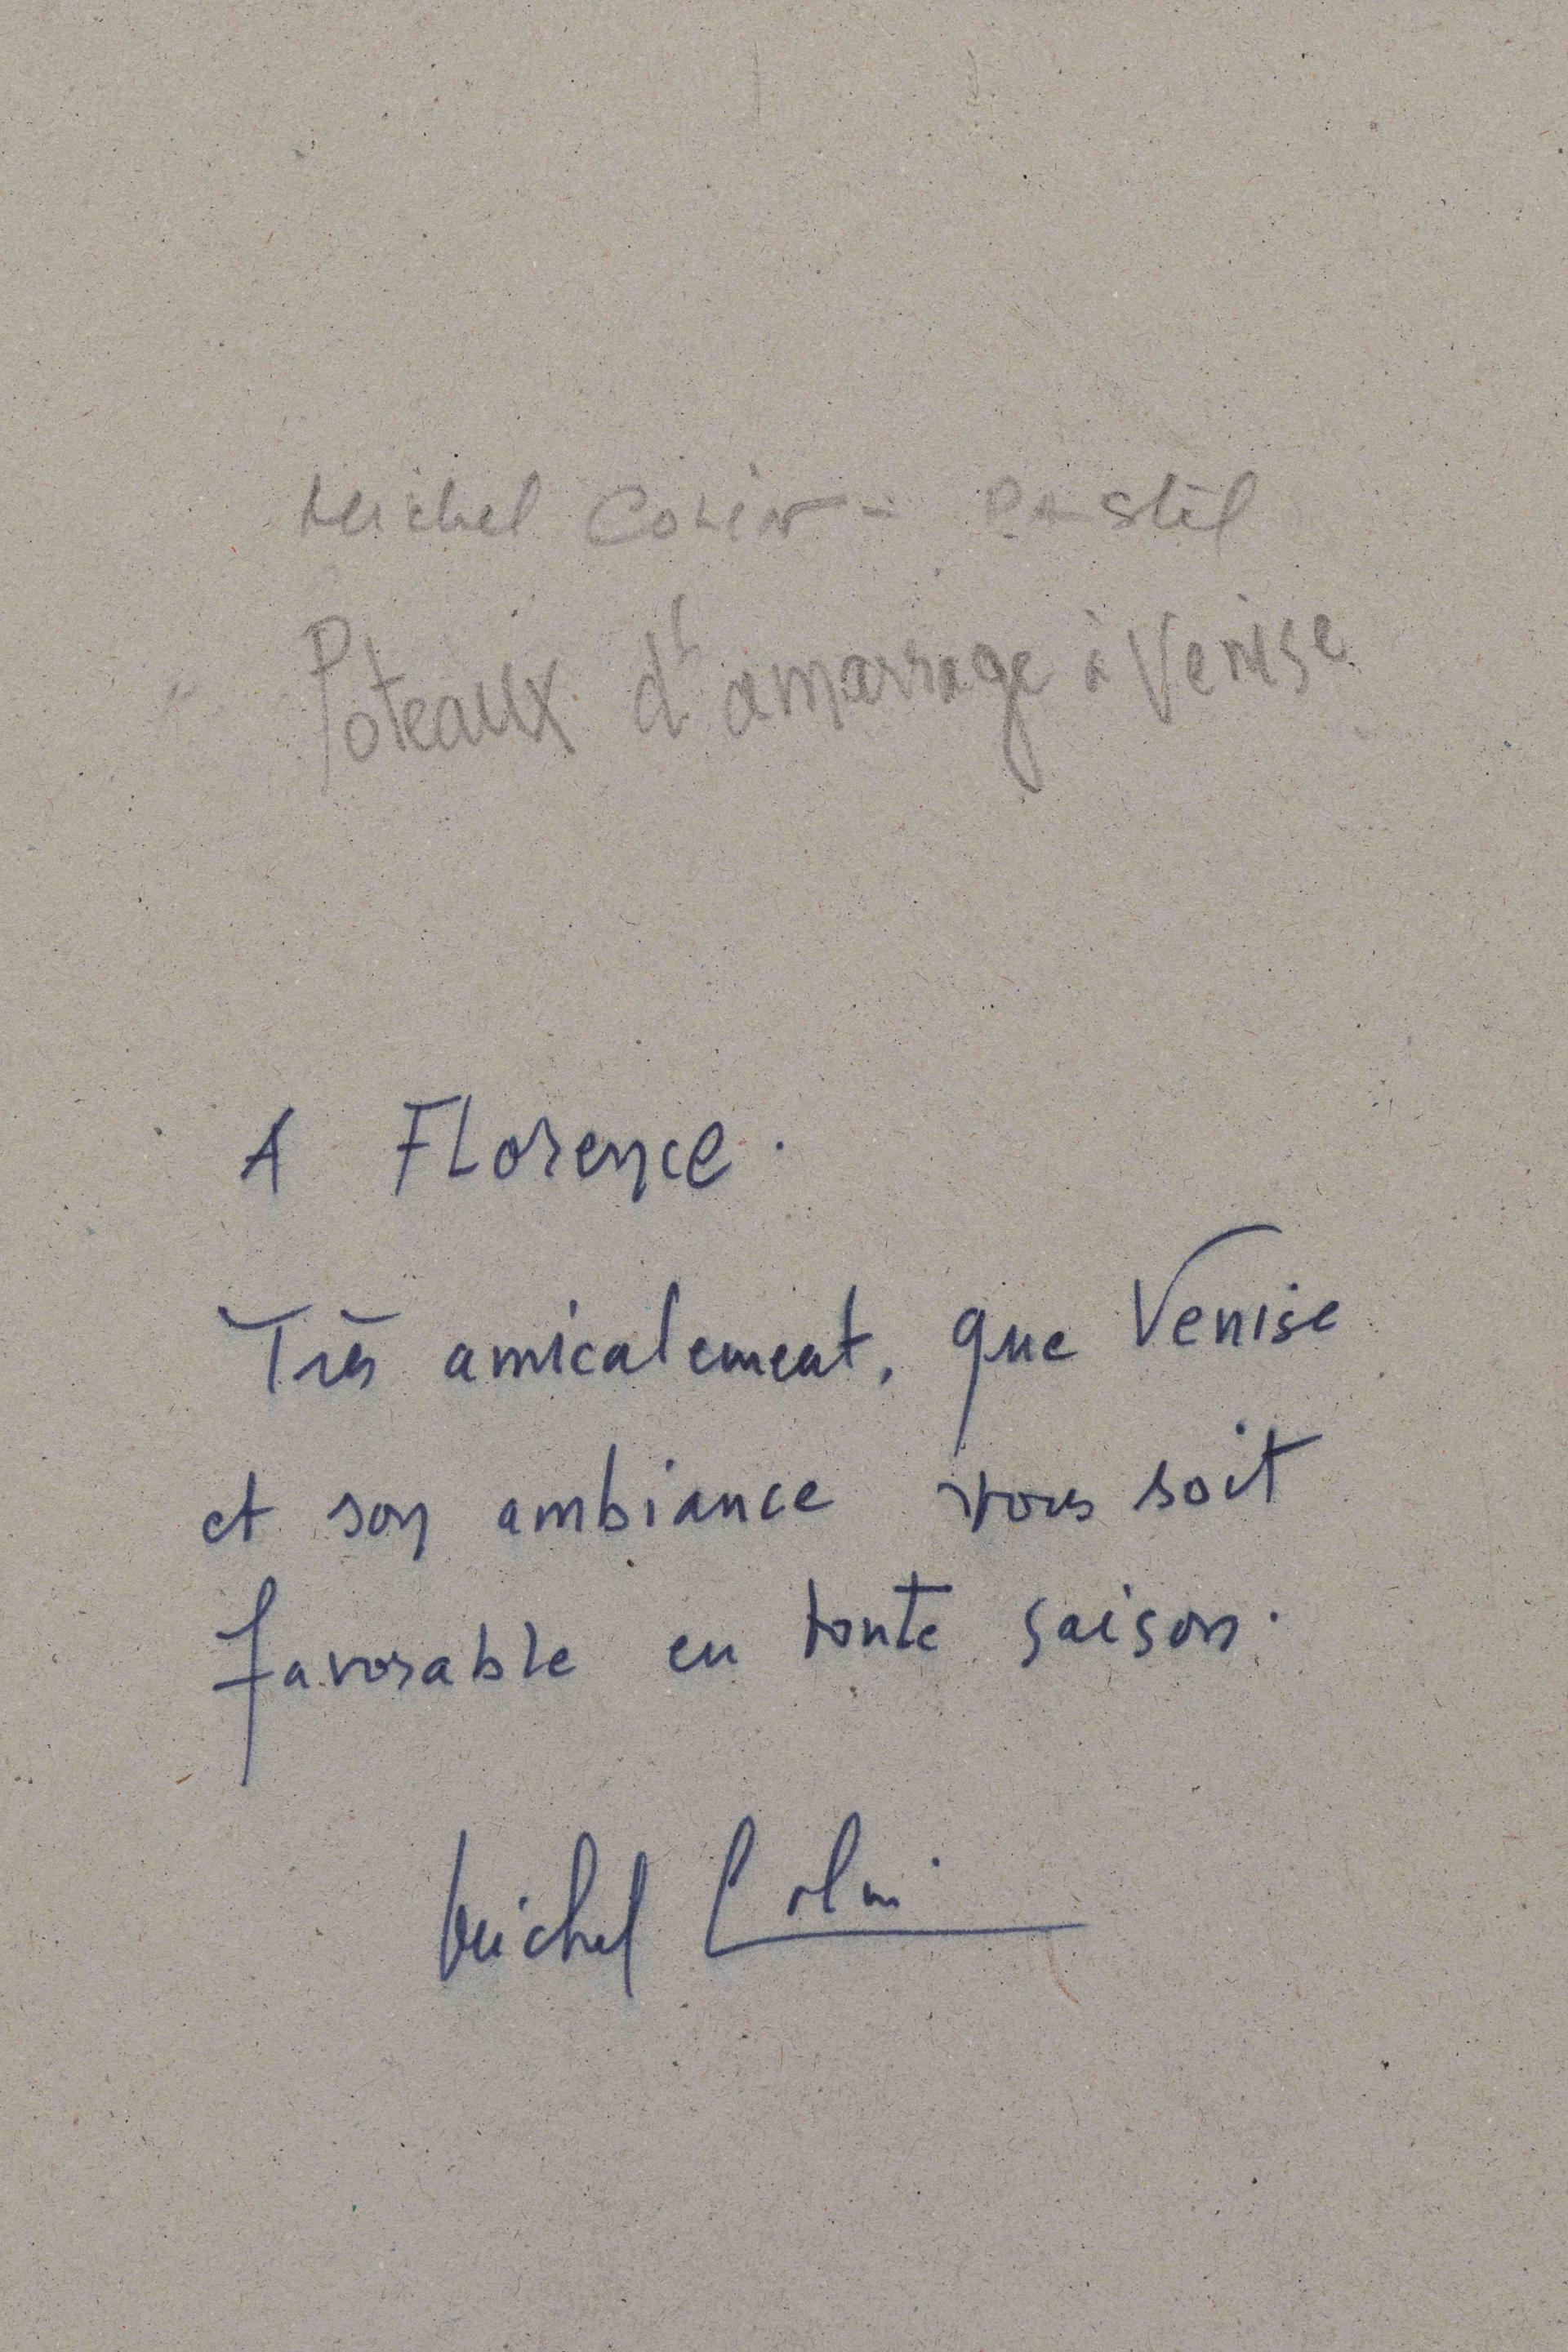 Michel Colin - Pastel
Poteaux d'amarrage à Venise
A Florence.
Très amicalement, que Venise
et son ambiance vous soit
favorable en toute saison.
Michel Colin